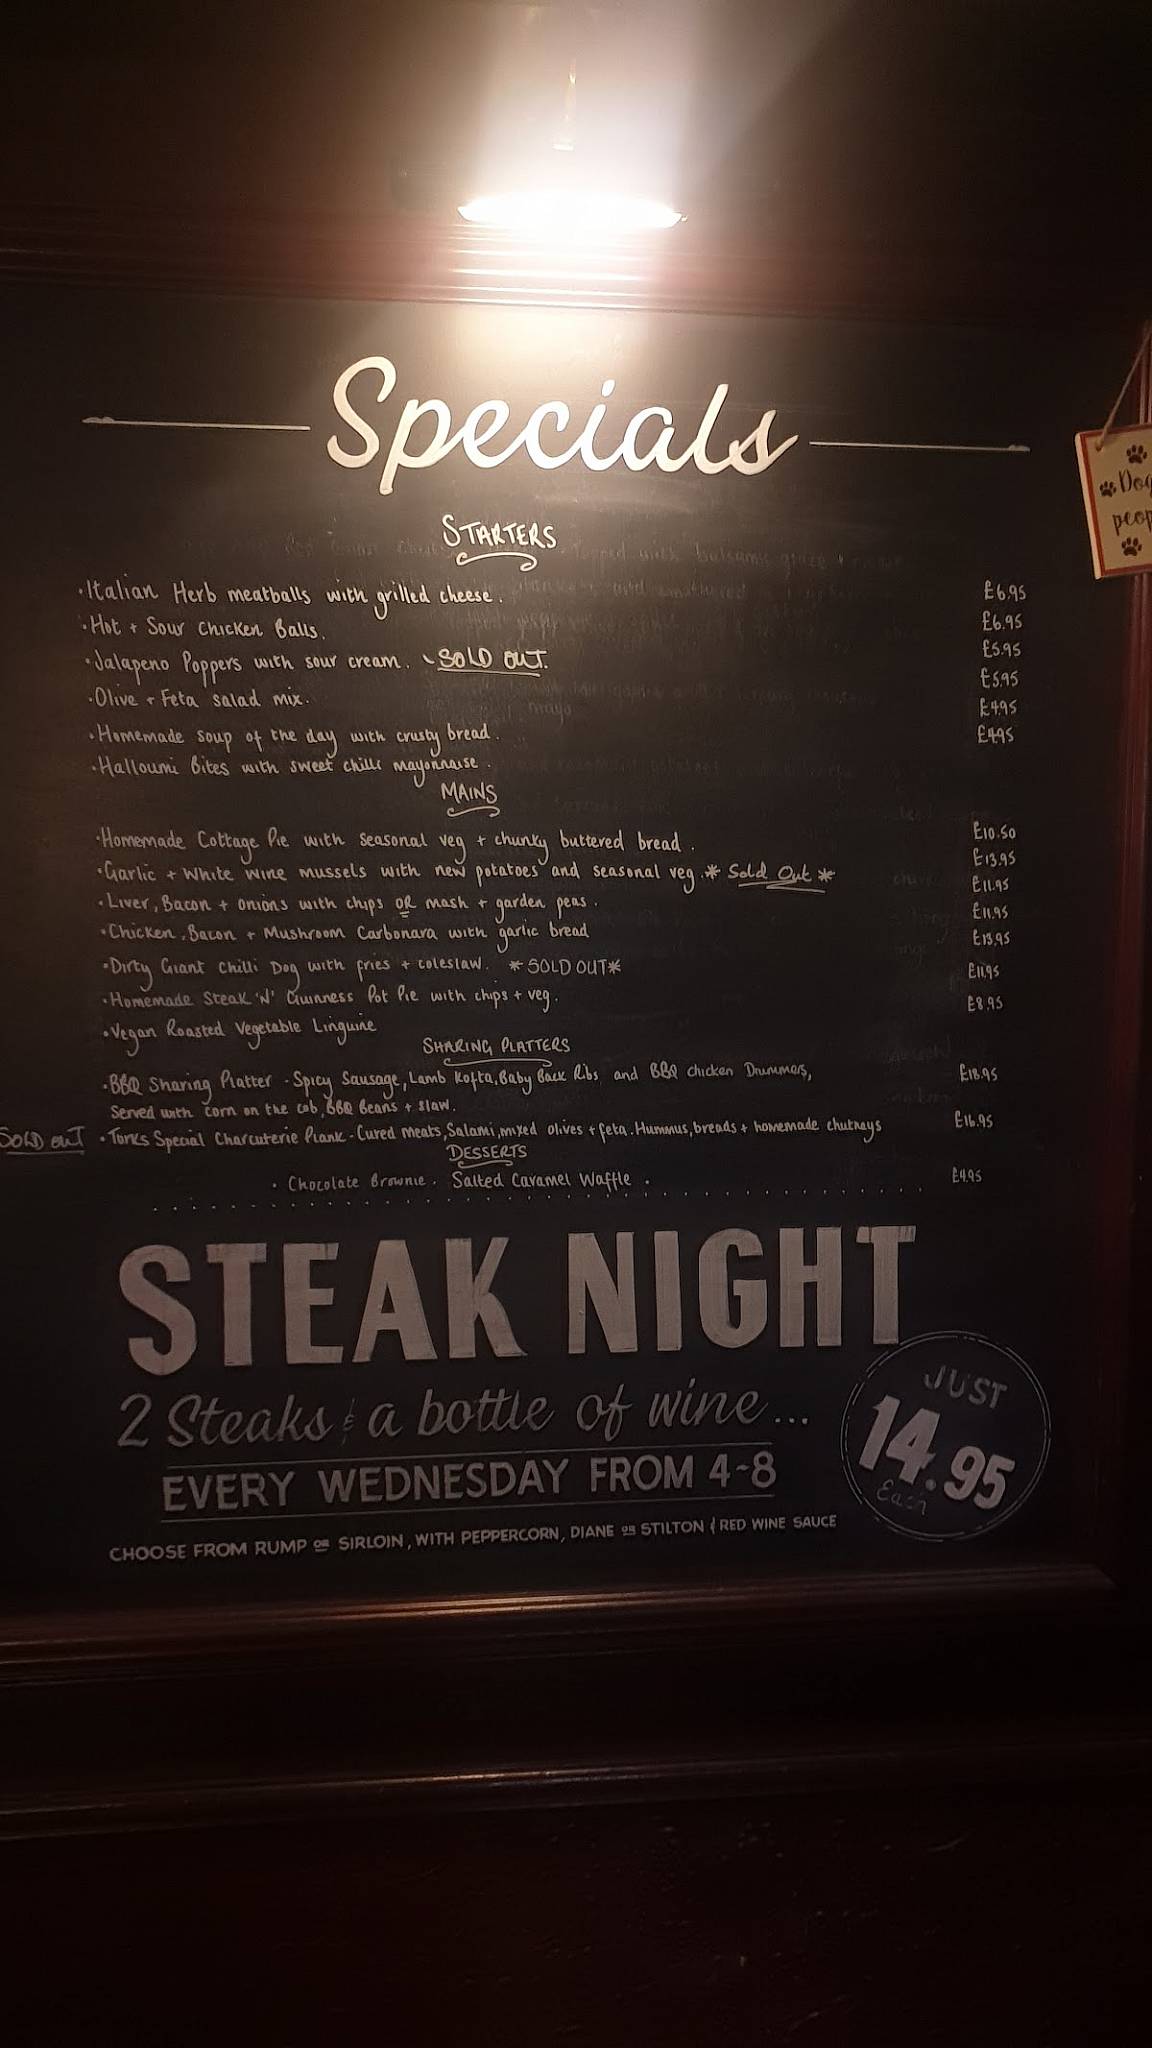 Specials
STARTERS
• Italian Herb meatballs with grilled cheese. £6.95
• Hot + Sour Chicken Balls. £6.95
• Jalapeno Poppers with sour cream. SOLD OUT. £5.95
• Olive + Feta salad mix. £5.95
• Homemade soup of the day with crusty bread. £4.95
• Halloumi Bites with sweet chilli mayonnaise. £4.95
MAINS
• Homemade Cottage Pie with seasonal veg + chunky buttered bread. £10.50
• Garlic + White wine mussels with new potatoes and seasonal veg. * Sold Out * £13.95
• Liver, Bacon + onions with chips OR mash + garden peas. £11.95
• Chicken, Bacon + Mushroom Carbonara with garlic bread £11.95
• Dirty Giant Chilli Dog with fries + coleslaw. * SOLD OUT * £13.95
• Homemade Steak 'N' Guinness Pot Pie with chips + veg. £11.95
• Vegan Roasted Vegetable Linguine £8.95
SHARING PLATTERS
• BBQ Sharing Platter - Spicy Sausage, Lamb Kofta, Baby Back Ribs and BBQ chicken Drummers, £18.95
Served with corn on the cob, BBQ Beans + slaw.
SOLD OUT • Torks Special Charcuterie Plank - Cured Meats, Salami, mixed olives + feta. Hummus, breads + homemade chutneys £16.95
DESSERTS
• Chocolate Brownie. Salted Caramel Waffle. £4.95
STEAK NIGHT
2 Steaks & a bottle of wine...
EVERY WEDNESDAY FROM 4-8
JUST
14.95
Each
CHOOSE FROM RUMP OR SIRLOIN, WITH PEPPERCORN, DIANE OR STILTON & RED WINE SAUCE